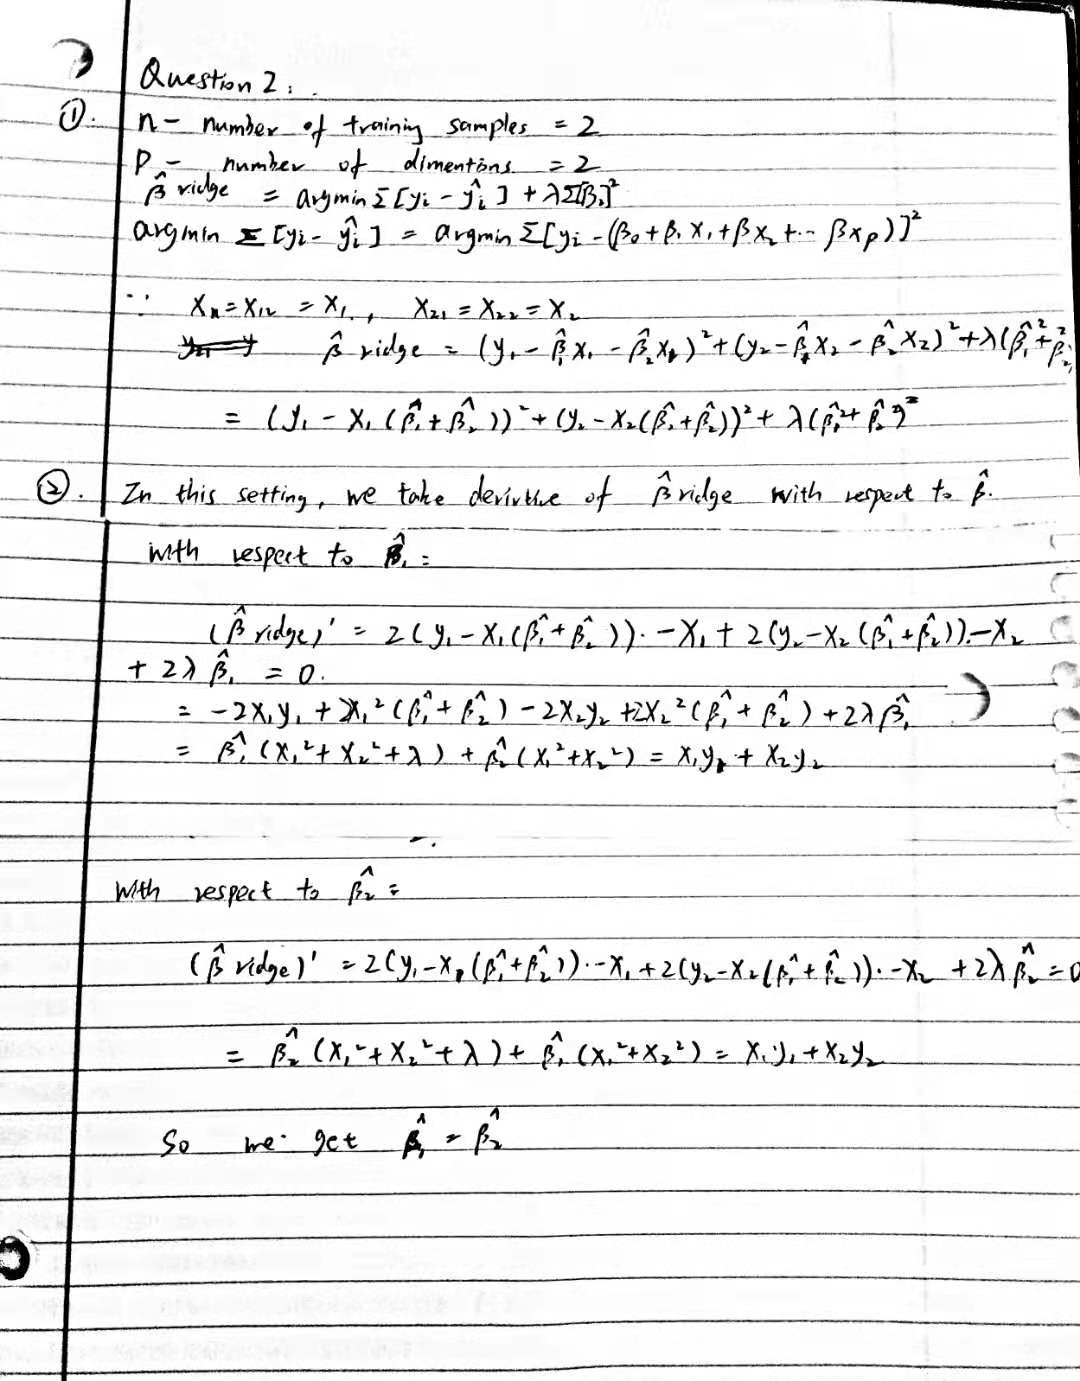 Question 2:
①. n - number of training samples = 2
P - number of dimentons = 2
β̂ ridge = argmin Σ [yi - ŷi] + λΣ[βi]²
argmin Σ [yi - ŷi] = argmin Σ[yi - (β₀ + β₁ X₁ + βX₂ + ... βxp)]²
∵ X₁₁ = X₁₂ = X₁, X₂₁ = X₂₂ = X₂
β̂ ridge = (y₁ - β̂₁X₁ - β̂₂X₁)² + (y₂ - β̂₁X₂ - β̂₂X₂)² + λ(β̂₁² + β̂₂²
= (y₁ - X₁(β̂₁ + β̂₂))² + (y₂ - X₂(β̂₁ + β̂₂))² + λ(β̂₁² + β̂₂²)
②. In this setting, we take derivtive of β̂ ridge with respect to β̂.
with respect to β̂₁:
(β̂ ridge)' = 2(y₁ - X₁(β̂₁ + β̂₂))·-X₁ + 2(y₂ - X₂(β̂₁ + β̂₂))·-X₂
+ 2λ β̂₁ = 0.
= -2X₁y₁ + 2X₁²(β̂₁ + β̂₂) - 2X₂y₂ + 2X₂²(β̂₁ + β̂₂) + 2λβ̂₁
= β̂₁(X₁² + X₂² + λ) + β̂₂(X₁² + X₂²) = X₁y₁ + X₂y₂
With respect to β̂₂:
(β̂ ridge)' = 2(y₁ - X₁(β̂₁ + β̂₂))·-X₁ + 2(y₂ - X₂(β̂₁ + β̂₂))·-X₂ + 2λ β̂₂ = 0
= β̂₂(X₁² + X₂² + λ) + β̂₁(X₁² + X₂²) = X₁y₁ + X₂y₂
So we get β̂₁ = β̂₂